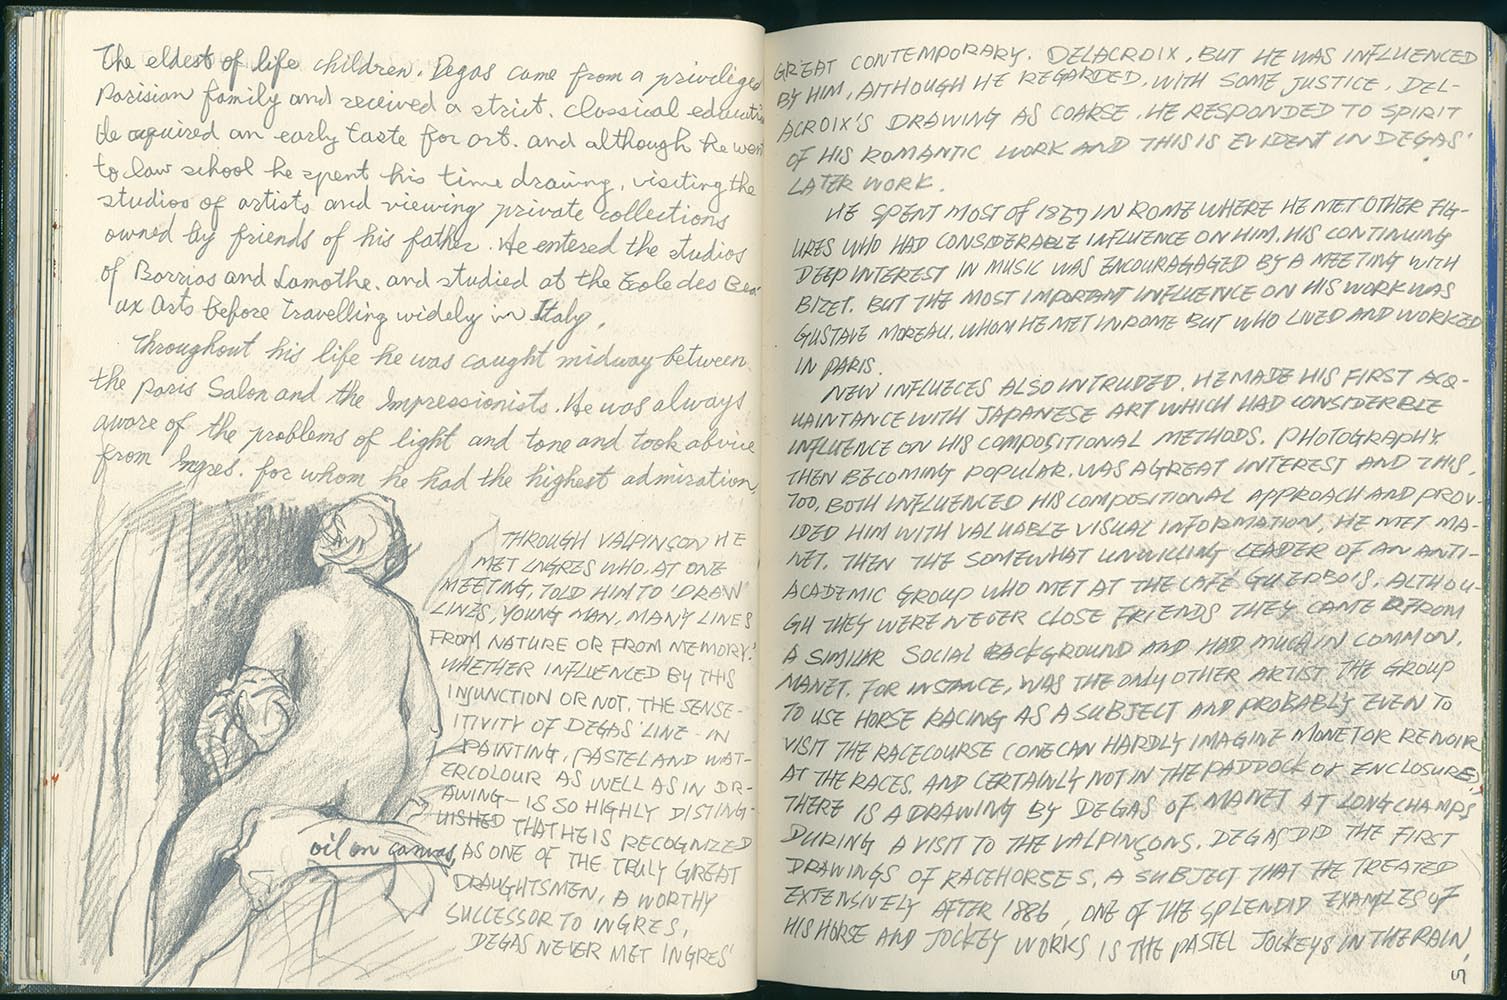 The eldest of life children. Degas came from a privileged
Parisian family and received a strict. classical educati
He aquired an early taste for art. and although he went
to law school he spent his time drawing, visiting the
studios of artists and viewing private collections
owned by friends of his father. He entered the studios
of Barrias and Lamothe. and studied at the Ecole des Bea-
ux Arts before travelling widely in Italy.
Throughout his life he was caught midway between
the Paris Salon and the Impressionists. He was always
aware of the problems of light and tone and took advice
from Ingres. for whom he had the highest admiration,
THROUGH VALPINÇON HE
MET INGRES WHO, AT ONE
MEETING, TOLD HIM TO 'DRAW
LINES, YOUNG MAN, MANY LINES
FROM NATURE OR FROM MEMORY.'
WHETHER INFLUENCED BY THIS
INJUNCTION OR NOT, THE SENSE-
ITIVITY OF DEGAS' LINE - IN
PAINTING, PASTEL AND WAT-
ERCOLOUR AS WELL AS IN DR-
AWING - IS SO HIGHLY DISTING-
UISHED THAT HE IS RECOGNIZED
oil on canvas,
AS ONE OF THE TRULY GREAT
DRAUGHTSMEN, A WORTHY
SUCCESSOR TO INGRES,
DEGAS NEVER MET INGRES'
GREAT CONTEMPORARY. DELACROIX, BUT HE WAS INFLUENCED
BY HIM, AlTHOUGH HE REGARDED, WITH SOME JUSTICE, DEL-
ACROIX'S DRAWING AS COARSE. HE RESPONDED TO SPIRIT
OF HIS ROMANTIC WORK AND THIS IS EVIDENT IN DEGAS'
LATER WORK.
HE SPENT MOST of 1857 IN ROME WHERE HE MET OTHER FIG-
URES WHO HAD CONSIDERABLE INFLUENCE ON HIM. HIS CONTINUING
DEEP INTEREST IN MUSIC WAS ENCOURAGAGED BY A MEETING WITH
BIZET. BUT THE MOST IMPORTANT INFLUENCE ON HIS WORK WAS
GUSTAVE MOREAU. WHOM HE MET IN ROME BUT WHO LIVED AND WORKED
IN PARIS.
NEW INFLUECES ALSO INTRUDED. HE MADE HIS FIRST ACQ-
UAINTANCE WITH JAPANESE ART WHICH HAD CONSIDERBLE
INFLUENCE ON HIS COMPOSITIONAL METHODS. PHOTOGRAPHY.
THEN BECOMING POPULAR. WAS A GREAT INTEREST AND THIS,
TOO, BOTH INFLUENCED HIS COMPOSITIONAL APPROACH AND PROV-
IDED HIM WITH VALUABLE VISUAL INFORMATION, HE MET MA-
NET. THEN THE SOMEWHAT UNWILLING LEADER OF AN ANTI-
ACADEMIC GROUP WHO MET AT THE CAFÉ GUERBOIS. ALTHOU-
GH THEY WERE NEVER CLOSE FRIENDS THEY CAME FROM
A SIMILAR SOCIAL BACKGROUND AND HAD MUCH IN COMMON.
MANET. FOR INSTANCE, WAS THE ONLY OTHER ARTIST THE GROUP
TO USE HORSE RACING AS A SUBJECT AND PROBABLY EVEN TO
VISIT THE RACECOURSE (ONE CAN HARDLY IMAGINE MONET OR RENOIR
AT THE RACES. AND CERTAINLY NOT IN THE PADDOCK OR ENCLOSURE)
THERE IS A DRAWING BY DEGAS OF MANET AT LONGCHAMPS
DURING A VISIT TO THE VALPINÇONS. DEGAS DID THE FIRST
DRAWINGS OF RACEHORSES, A SUBJECT THAT THE TREATED
EXTENSIVELY AFTER 1886, ONE OF THE SPLENDID EXAMPLES OF
HIS HORSE AND JOCKEY WORKS IS THE PASTEL JOCKEYS IN THE RAIN,
5